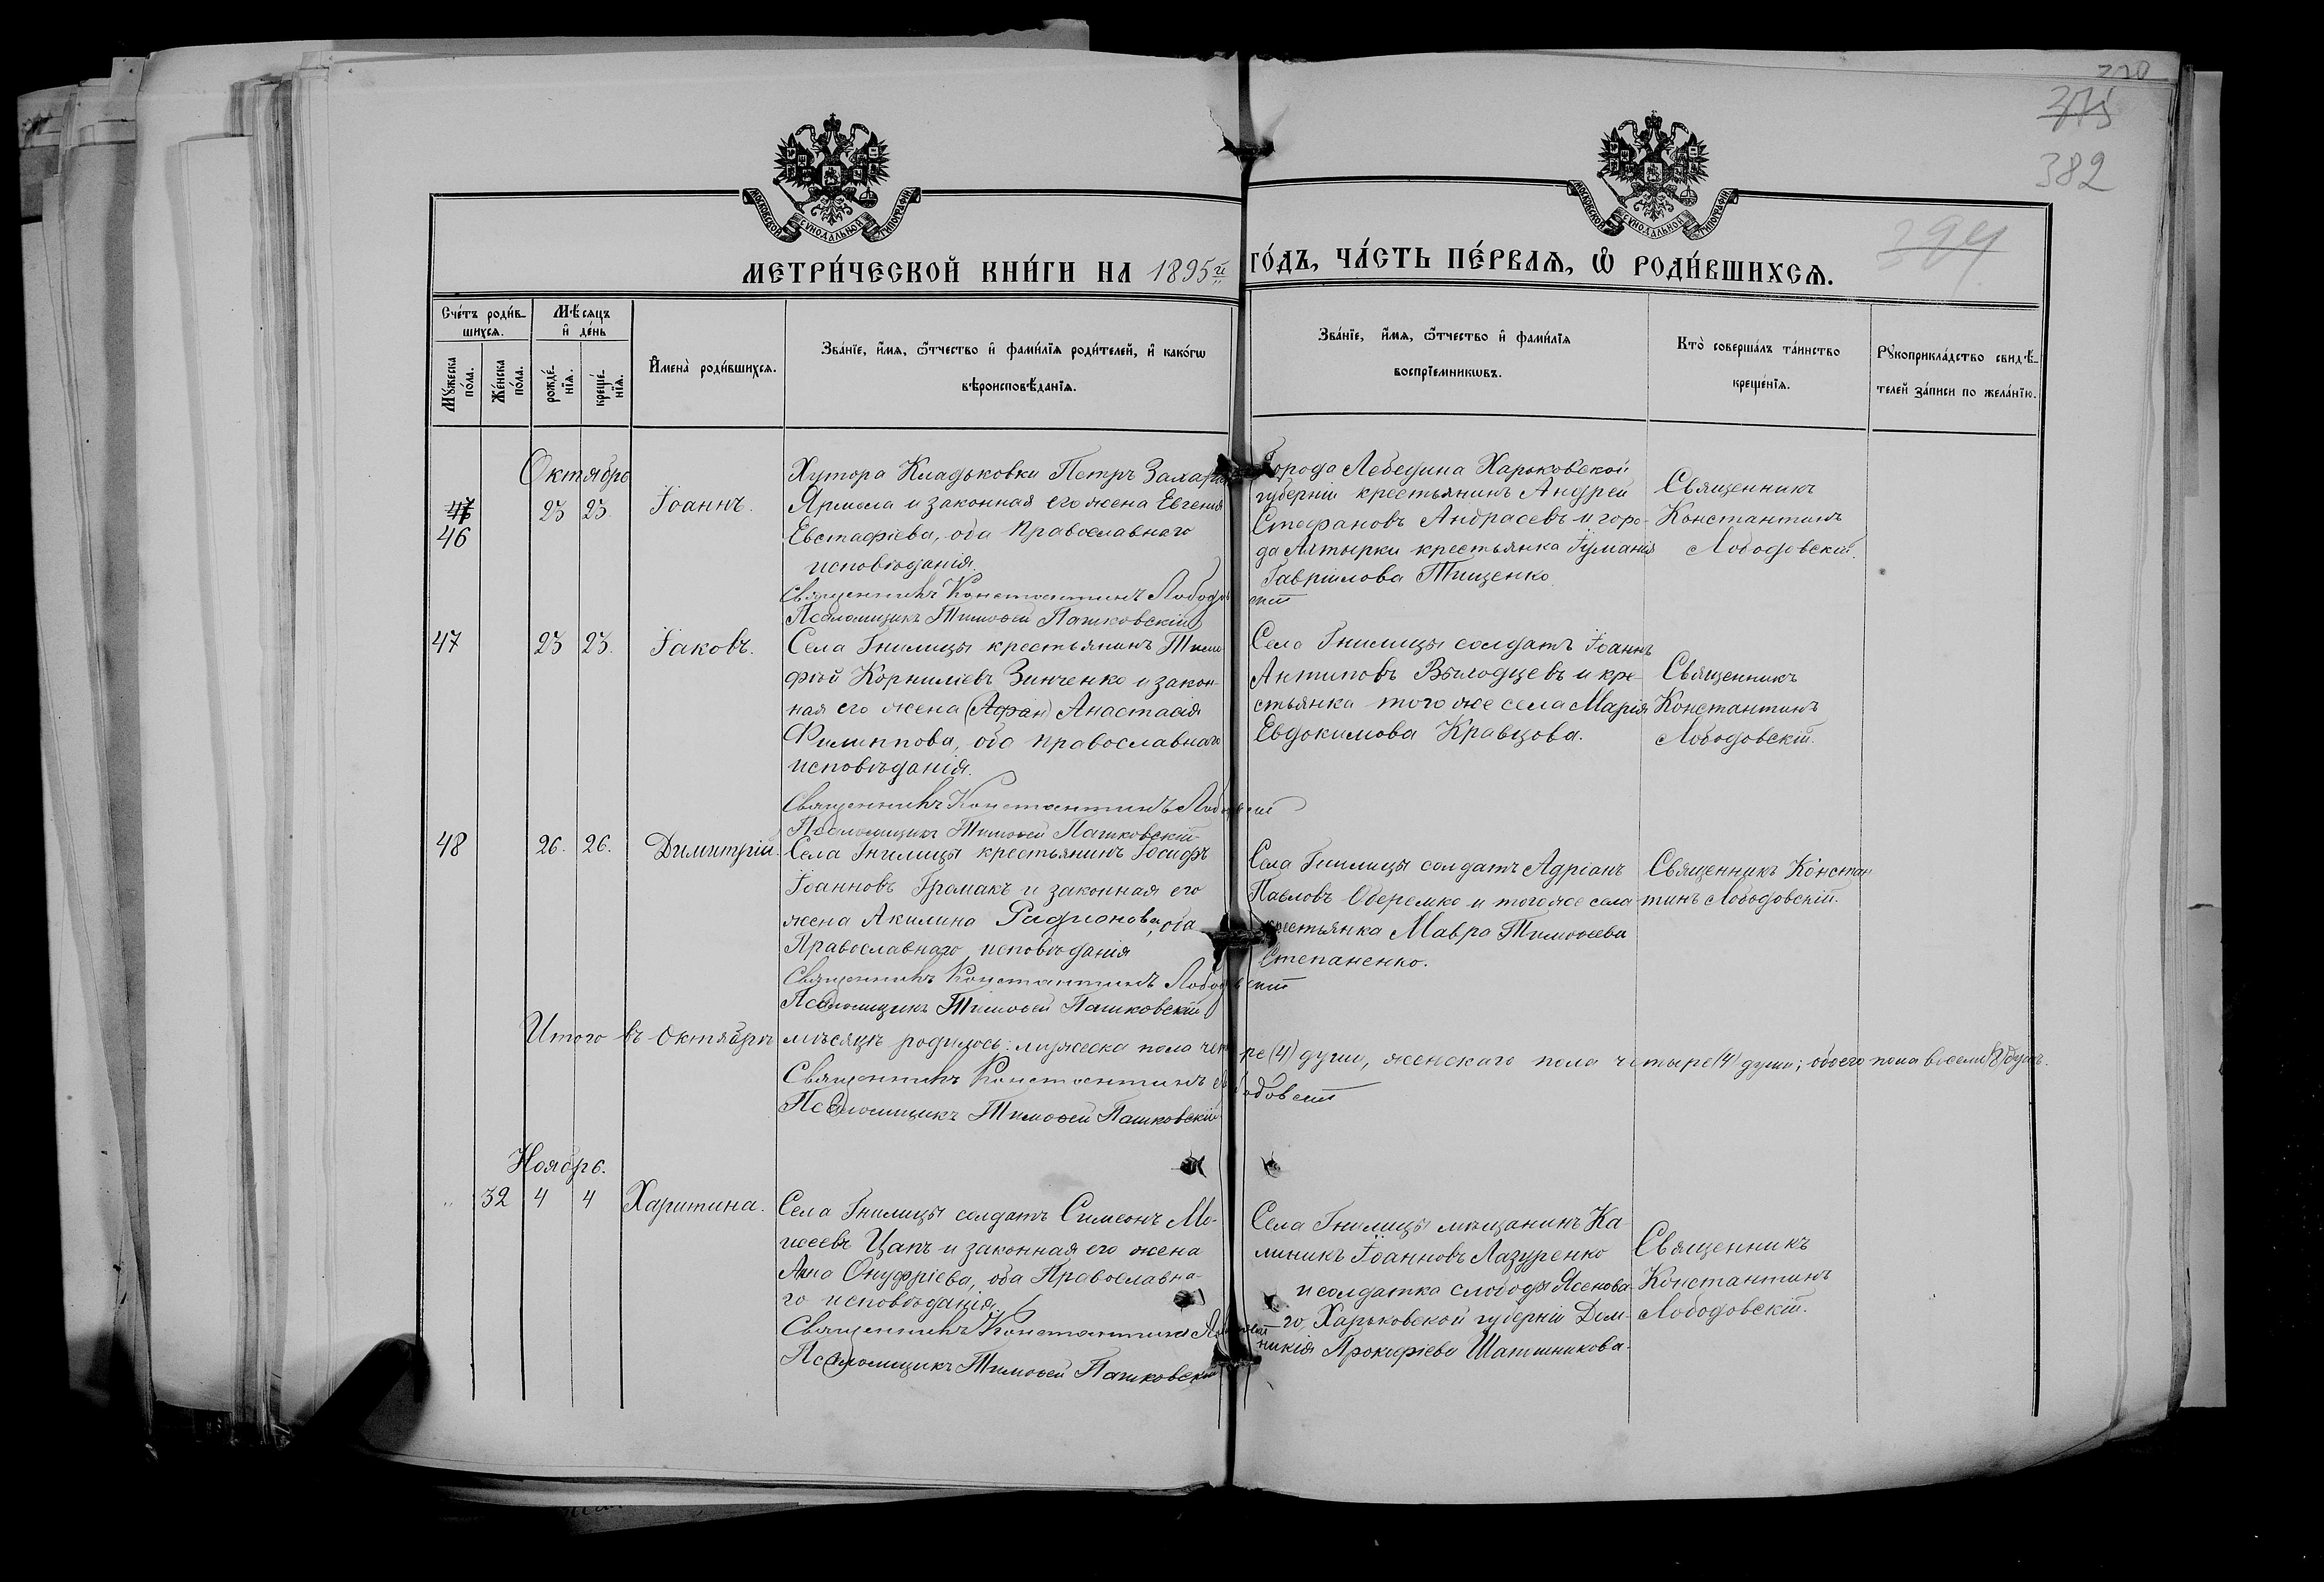 382
МОСКОВСКОЙ СѴНОДАЛЬНОЙ ТИПОГРАФІИ
МОСКОВСКОЙ СѴНОДАЛЬНОЙ ТИПОГРАФІИ
МЕТРИ́ЧЕСКОЙ КНИ́ГИ НА 1895й ГО́ДЪ, ЧА́СТЬ ПЕ́РВАЯ, Ѽ РОДИ́ВШИХСЯ.
Сче́тъ роди́в-
шихся.
Мꙋжеска по́ла.
Же́нска по́ла.
Мѣ́сяцъ
и҆ де́нь
рожде́-
нїя.
креще́-
нїя.
И҆мена̀ роди́вшихся.
Зва́нїе, и҆́мя, ѻ҆́тчество и҆ фами́лїя роди́телей, и҆ како́гѡ
вѣроисповѣ́данїя.
Зва́нїе, и҆́мя, ѻ҆́тчество и҆ фами́лїя
воспрїемникѡвъ.
Кто̀ соверша́лъ та́инство
креще́нїя.
Рꙋкоприкла́дство свидѣ́-
телей за́писи по жела́нїю.
Октябрь
46 23 23. Іоаннъ.
Хутора Кладьковки Петръ
Ярмола и законная его жена Евгенія
Евстафіева, оба Православнаго
исповѣданія.
Священникъ Константинъ Лободовскій
Псаломщикъ Тимоѳей Пашковскій
Города Лебедина Харьковской
губерніи крестьянинъ Андрей
Стефановъ Андрасевъ и горо-
да Ахтырки крестьянка Іуліанія
Гавріилова Тищенко.
Священникъ
Константинъ
Лободовскій.
47 23 23. Іаковъ.
Села Гнилицы крестьянинъ Тимо
фей Корниліевъ Зинченко и закон-
ная его жена (Афан) Анастасія
Филиппова, оба православнаго
исповѣданія.
Священникъ Константинъ Лободовскій
Псаломщикъ Тимоѳей Пашковскій
Села Гнилицы солдатъ Іоаннъ
Антиповъ Вылодцевъ и кре-
стьянка того же села Марія
Евдокимова Кравцова.
Священникъ
Константинъ
Лободовскій.
48 26. 26. Димитрій.
Села Гнилицы крестьянинъ Іосифъ
Іоанновъ Громакъ и законная его
жена Акилина Радіонова, оба
Православнаго исповѣданія
Священникъ Константинъ Лободовскій
Псаломщикъ Тимоѳей Пашковскій
Села Гнилицы солдатъ Адріанъ
Павловъ Оберемко и того же села
крестьянка Мавра Тимоѳеева
Степаненко.
Священникъ Констан
тинъ Лободовскій.
Итого въ Октябрѣ мѣсяцѣ родилось: мужеска пола четыре (4) души, женскаго пола четыре (4) души; обоего пола восемь (8) душъ.
Священникъ Константинъ Лободовскій
Псаломщикъ Тимоѳей Пашковскій
Ноябрь.
„ 32 4 4 Харитина.
Села Гнилицы солдатъ Симеонъ Мо-
исеевъ Цапъ и законная его жена
Анна Онуфріева, оба Православна-
го исповѣданія.
Священникъ Константинъ Лободовскій
Псаломщикъ Тимоѳей Пашковскій
Села Гнилицы мѣщанинъ Ка-
линикъ Іоанновъ Лазуренко
и солдатка слободы Ясенова-
го, Харьковской губерніи Дом-
никія Прокофіева Шапошникова.
Священникъ
Константинъ
Лободовскій.